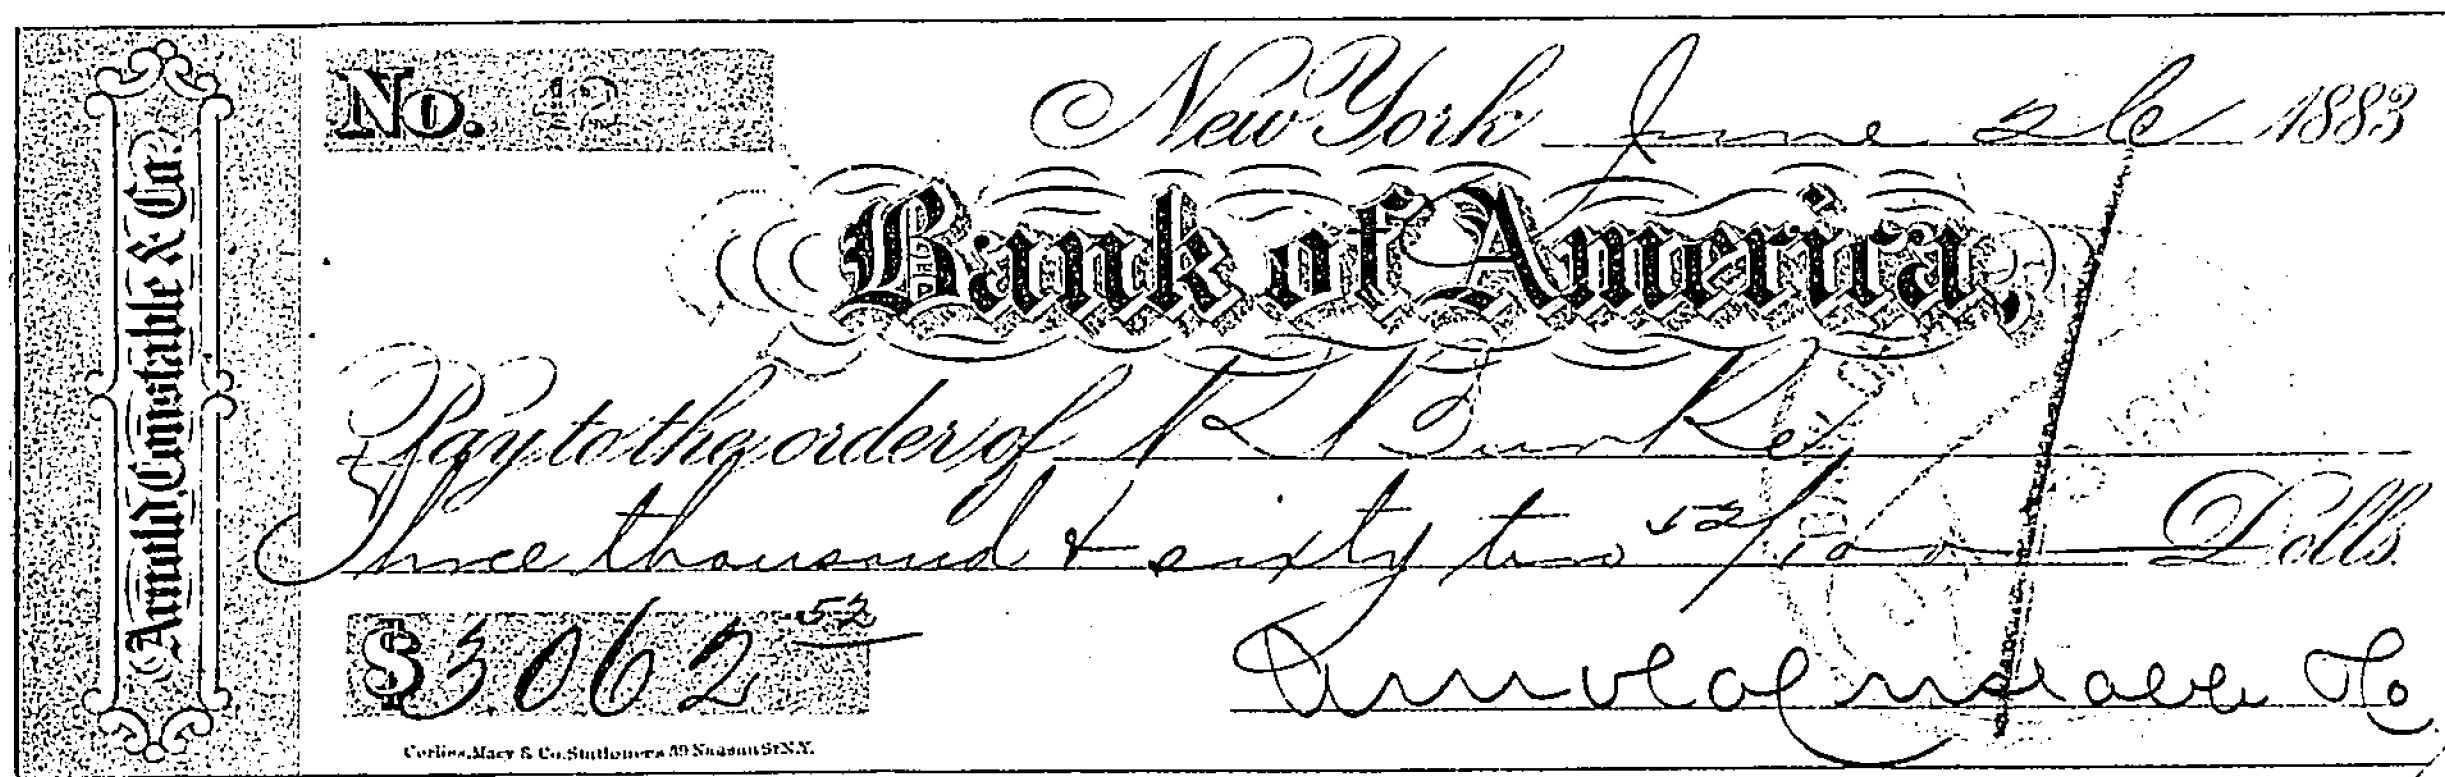 Arnold, Constable & Co.
No. 12
New York June 26 1883
Bank of America,
Pay to the order of R Bunke
Three thousand & sixty two 52/100 Dolls.
$3062 52
Arnold Constable & Co
Corlies, Macy & Co. Stationers 39 Nassau St. N.Y.